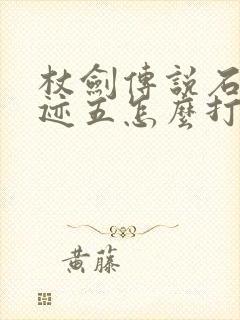 杖劍傳說石
迹五怎麼打
黄藤